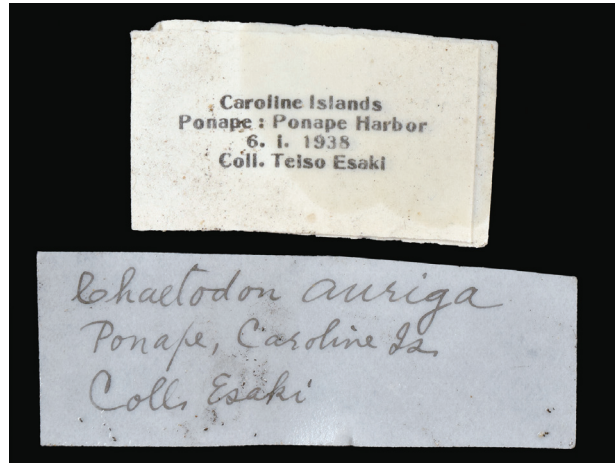 Caroline Islands
Ponape : Ponape Harbor
6. i. 1938
Coll. Teiso Esaki
Chaetodon auriga
Ponape, Caroline Is.
Coll. Esaki